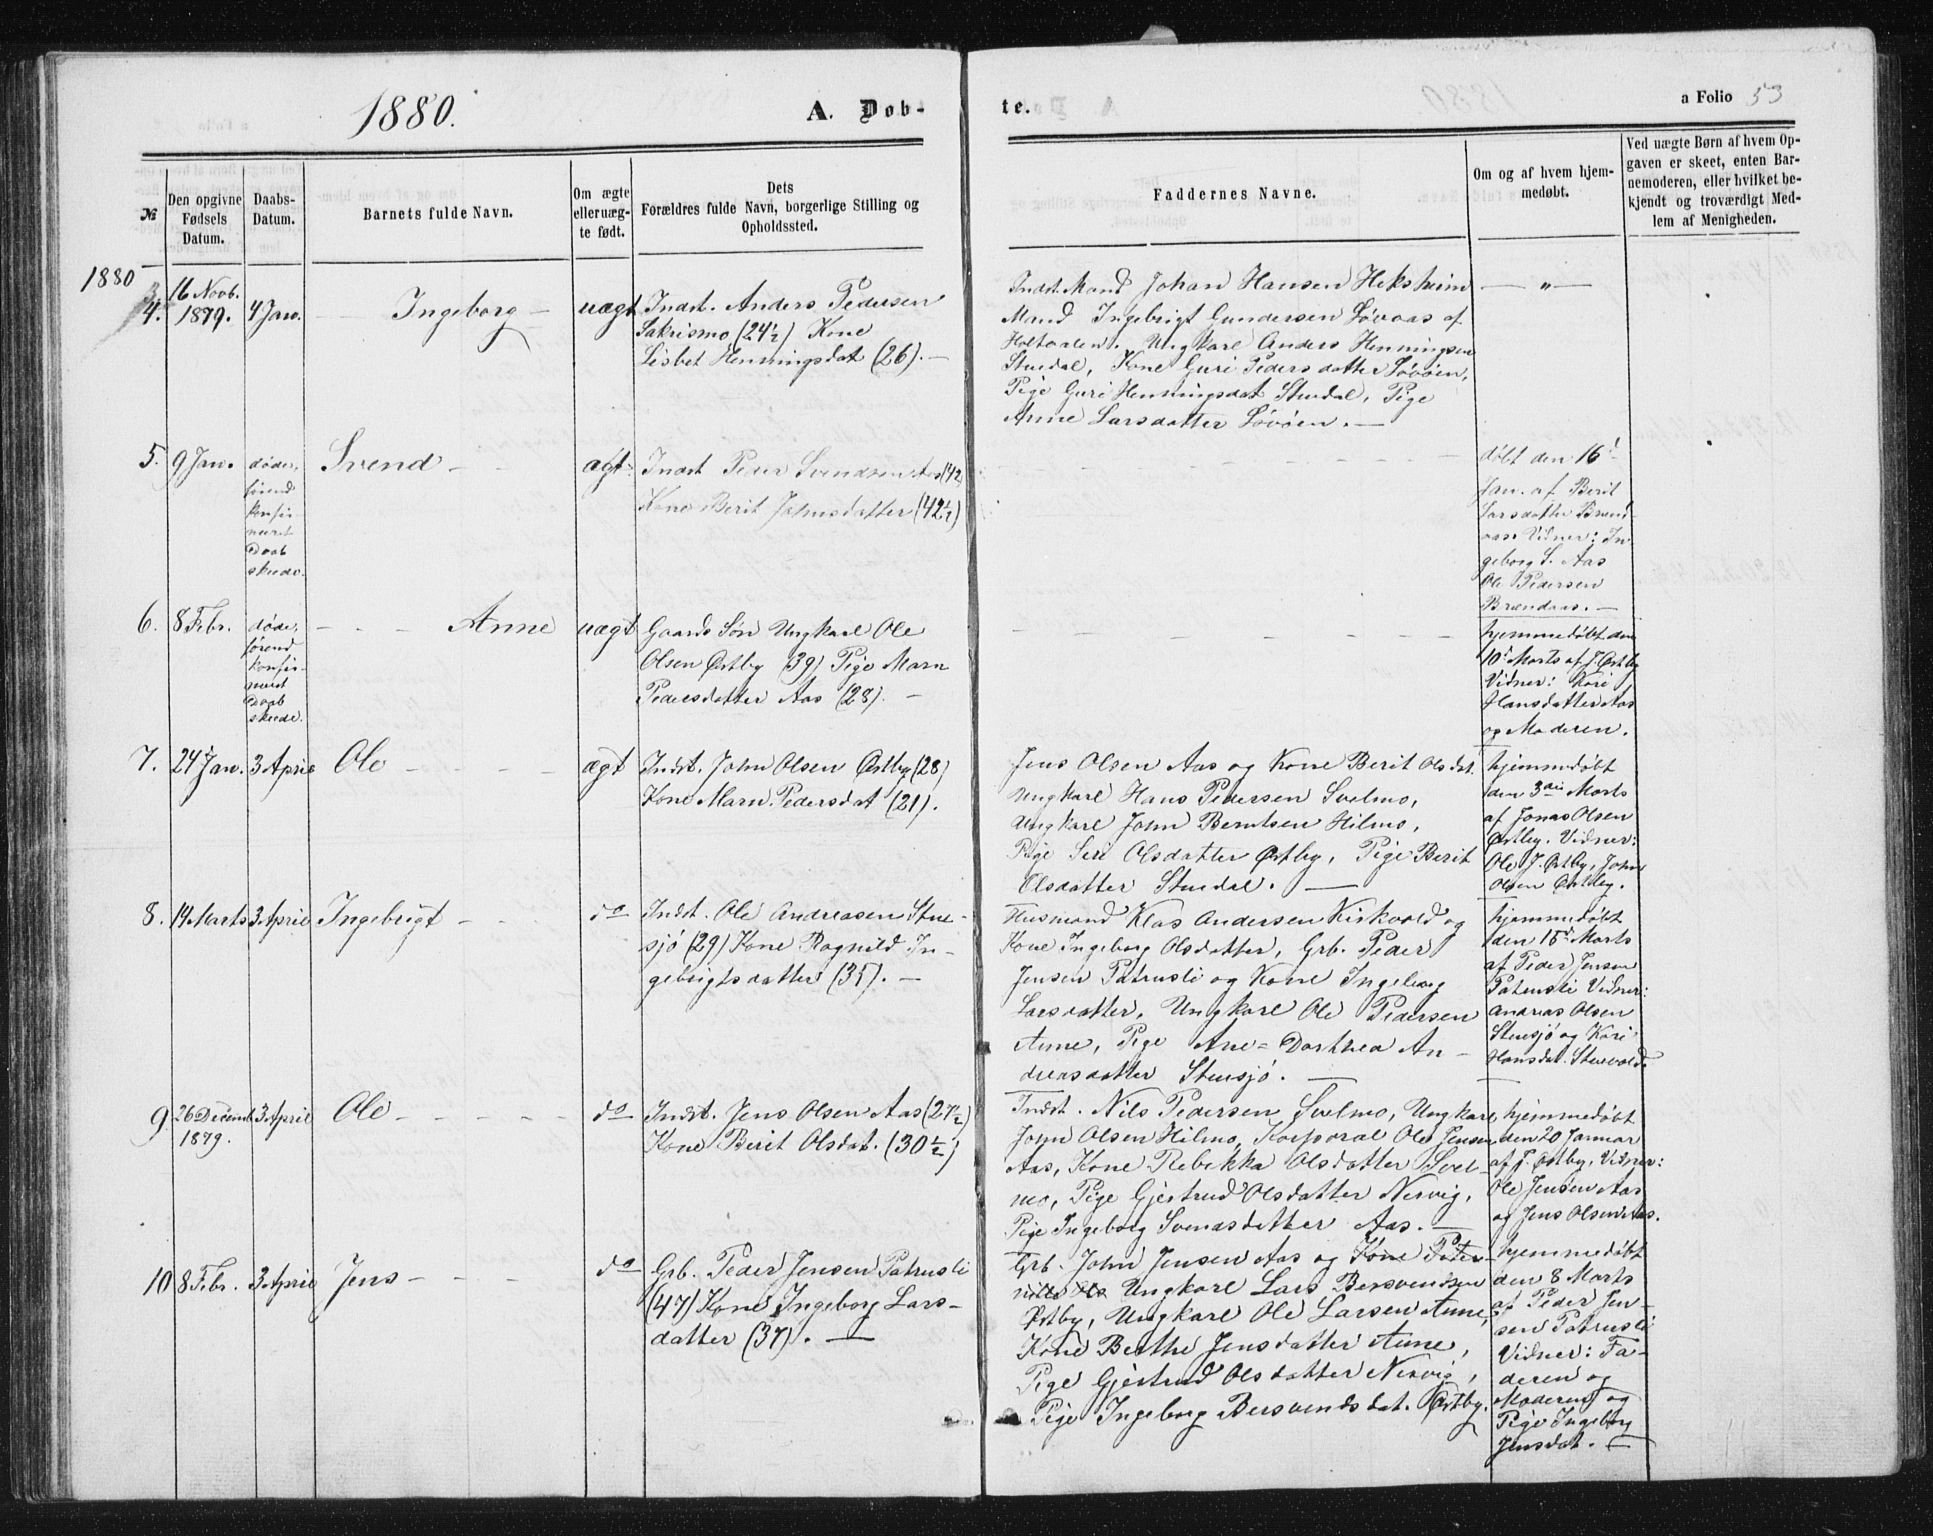 1880.
A. Døb-
te.
a Folio 53
№
Den opgivne Fødsels Datum.
Daabs-Datum.
Barnets fulde Navn.
Om ægte eller uæg-te født.
Dets
Forældres fulde Navn, borgerlige Stilling og Opholdssted.
Faddernes Navne.
Om og af hvem hjem-medøbt.
Ved uægte Børn af hvem Op-gaven er skeet, enten Bar-nemoderen, eller hvilket be-kjendt og troværdigt Med-lem af Menigheden.
1880
4. 16 Novb. 1879. 4 Jan. Ingeborg uægt
Indst. Anders Pedersen
Sakrismo (24½) Kone
Lisbet Henningsdat (26). —
Indst. Mand Johan Hansen Heksheim
Mand Ingebrigt Gundersen Løvaas af
Holtaalen. Ungkarl Anders Henningsen
Stuedal, Kone Guri Pedersdatter Løvøen,
Pige Guri Henningsdat Stuedal, Pige
Anne Larsdatter Løvøen. —
— „ —
5. 9 Jan. døde, førend konfir-meret Daab skeede. Svend ægt
Indst Peder Svendsen Aas (42
Kone Berit Johnsdatter (42½)
døbt den 16
Jan. af Berit
Larsdatter Brænd
aas. Vidner: In
geborg S. Aas
Ole Pedersen
Brændaas. —
6. 8 Febr. døde, førend konfir-meret Daab skeede. Anne uægt
Gaards Søn Ungkarl Ole
Olsen Østby (39) Pige Marn
Pedersdatter Aas (28). —
hjemmedøbt den
10 Marts af J. Østby
Vidner: Kari
Hansdatter Aas
og Moderen.
7. 24 Jan. 3 April Ole ægt
Indst. John Olsen Østby (28)
Kone Marn Pedersdat (21).
Jens Olsen Aas og Kone Berit Olsdat.
Ungkarl Hans Pedersen Svelmo,
Ungkarl John Berntsen Hilmo,
Pige Seri Olsdatter Østby, Pige Berit
Olsdatter Stuedal. —
hjemmedøbt
den 3die Marts
af Jonas Olsen
Østby. Vidner:
Ole J. Østby, John
Olsen Østby.
8. 14 Marts 3 April Ingebrigt do
Indst. Ole Andreasen Stue-
sjö (29) Kone Ragnild In-
gebrigtsdatter (35). —
Husmand Klas Andersen Kirkvold og
Kone Ingeborg Olsdatter, Grb. Peder
Jensen Patrusli og Kone Ingeborg
Larsdatter, Ungkarl Ole Pedersen
Aune, Pige Ane=Dorthea An-
dreasdatter Stuesjö. —
hjemmedøbt
den 18de Marts
af Peder Jensen
Patrusli Vidner:
Andreas Olsen
Stuesjö og Kari
Hansdat. Stuevold.
9. 26 Decemb 1879. 3 April Ole do
Indst. Jens Olsen Aas (27½)
Kone Berit Olsdat. (30½)
Indst. Nils Pedersen Svelmo, Ungkarl
John Olsen Hilmo, Korporal Ole Jensen
Aas, Kone Rebekka Olsdatter Svel-
mo, Pige Gjertrud Olsdatter Nervig,
Pige Ingeborg Svendsdatter Aas. —
hjemmedøbt
den 20 Januar
af J. Østby, Vidner:
Ole Jensen Aas
og Jens Olsen Aas.
10 8 Febr. 3 April Jens do
Grb. Peder Jensen Patrusli
(47) Kone Ingeborg Lars-
datter (37). —
Grb. John Jensen Aas og Kone Peter-
nille Ungkarl Lars Bersvendsen
Østby, Ungkarl Ole Larsen Aune,
Kone Berthe Jensdatter Aune,
Pige Gjertrud Olsdatter Nervig,
Pige Ingeborg Bersvendsdat. Østby.
hjemmedøbt
den 8 Marts
af Peder Jen-
sen Patrusli
Vidner: Fa-
deren og
Moderen og
Pige Ingeborg
Jensdat. —